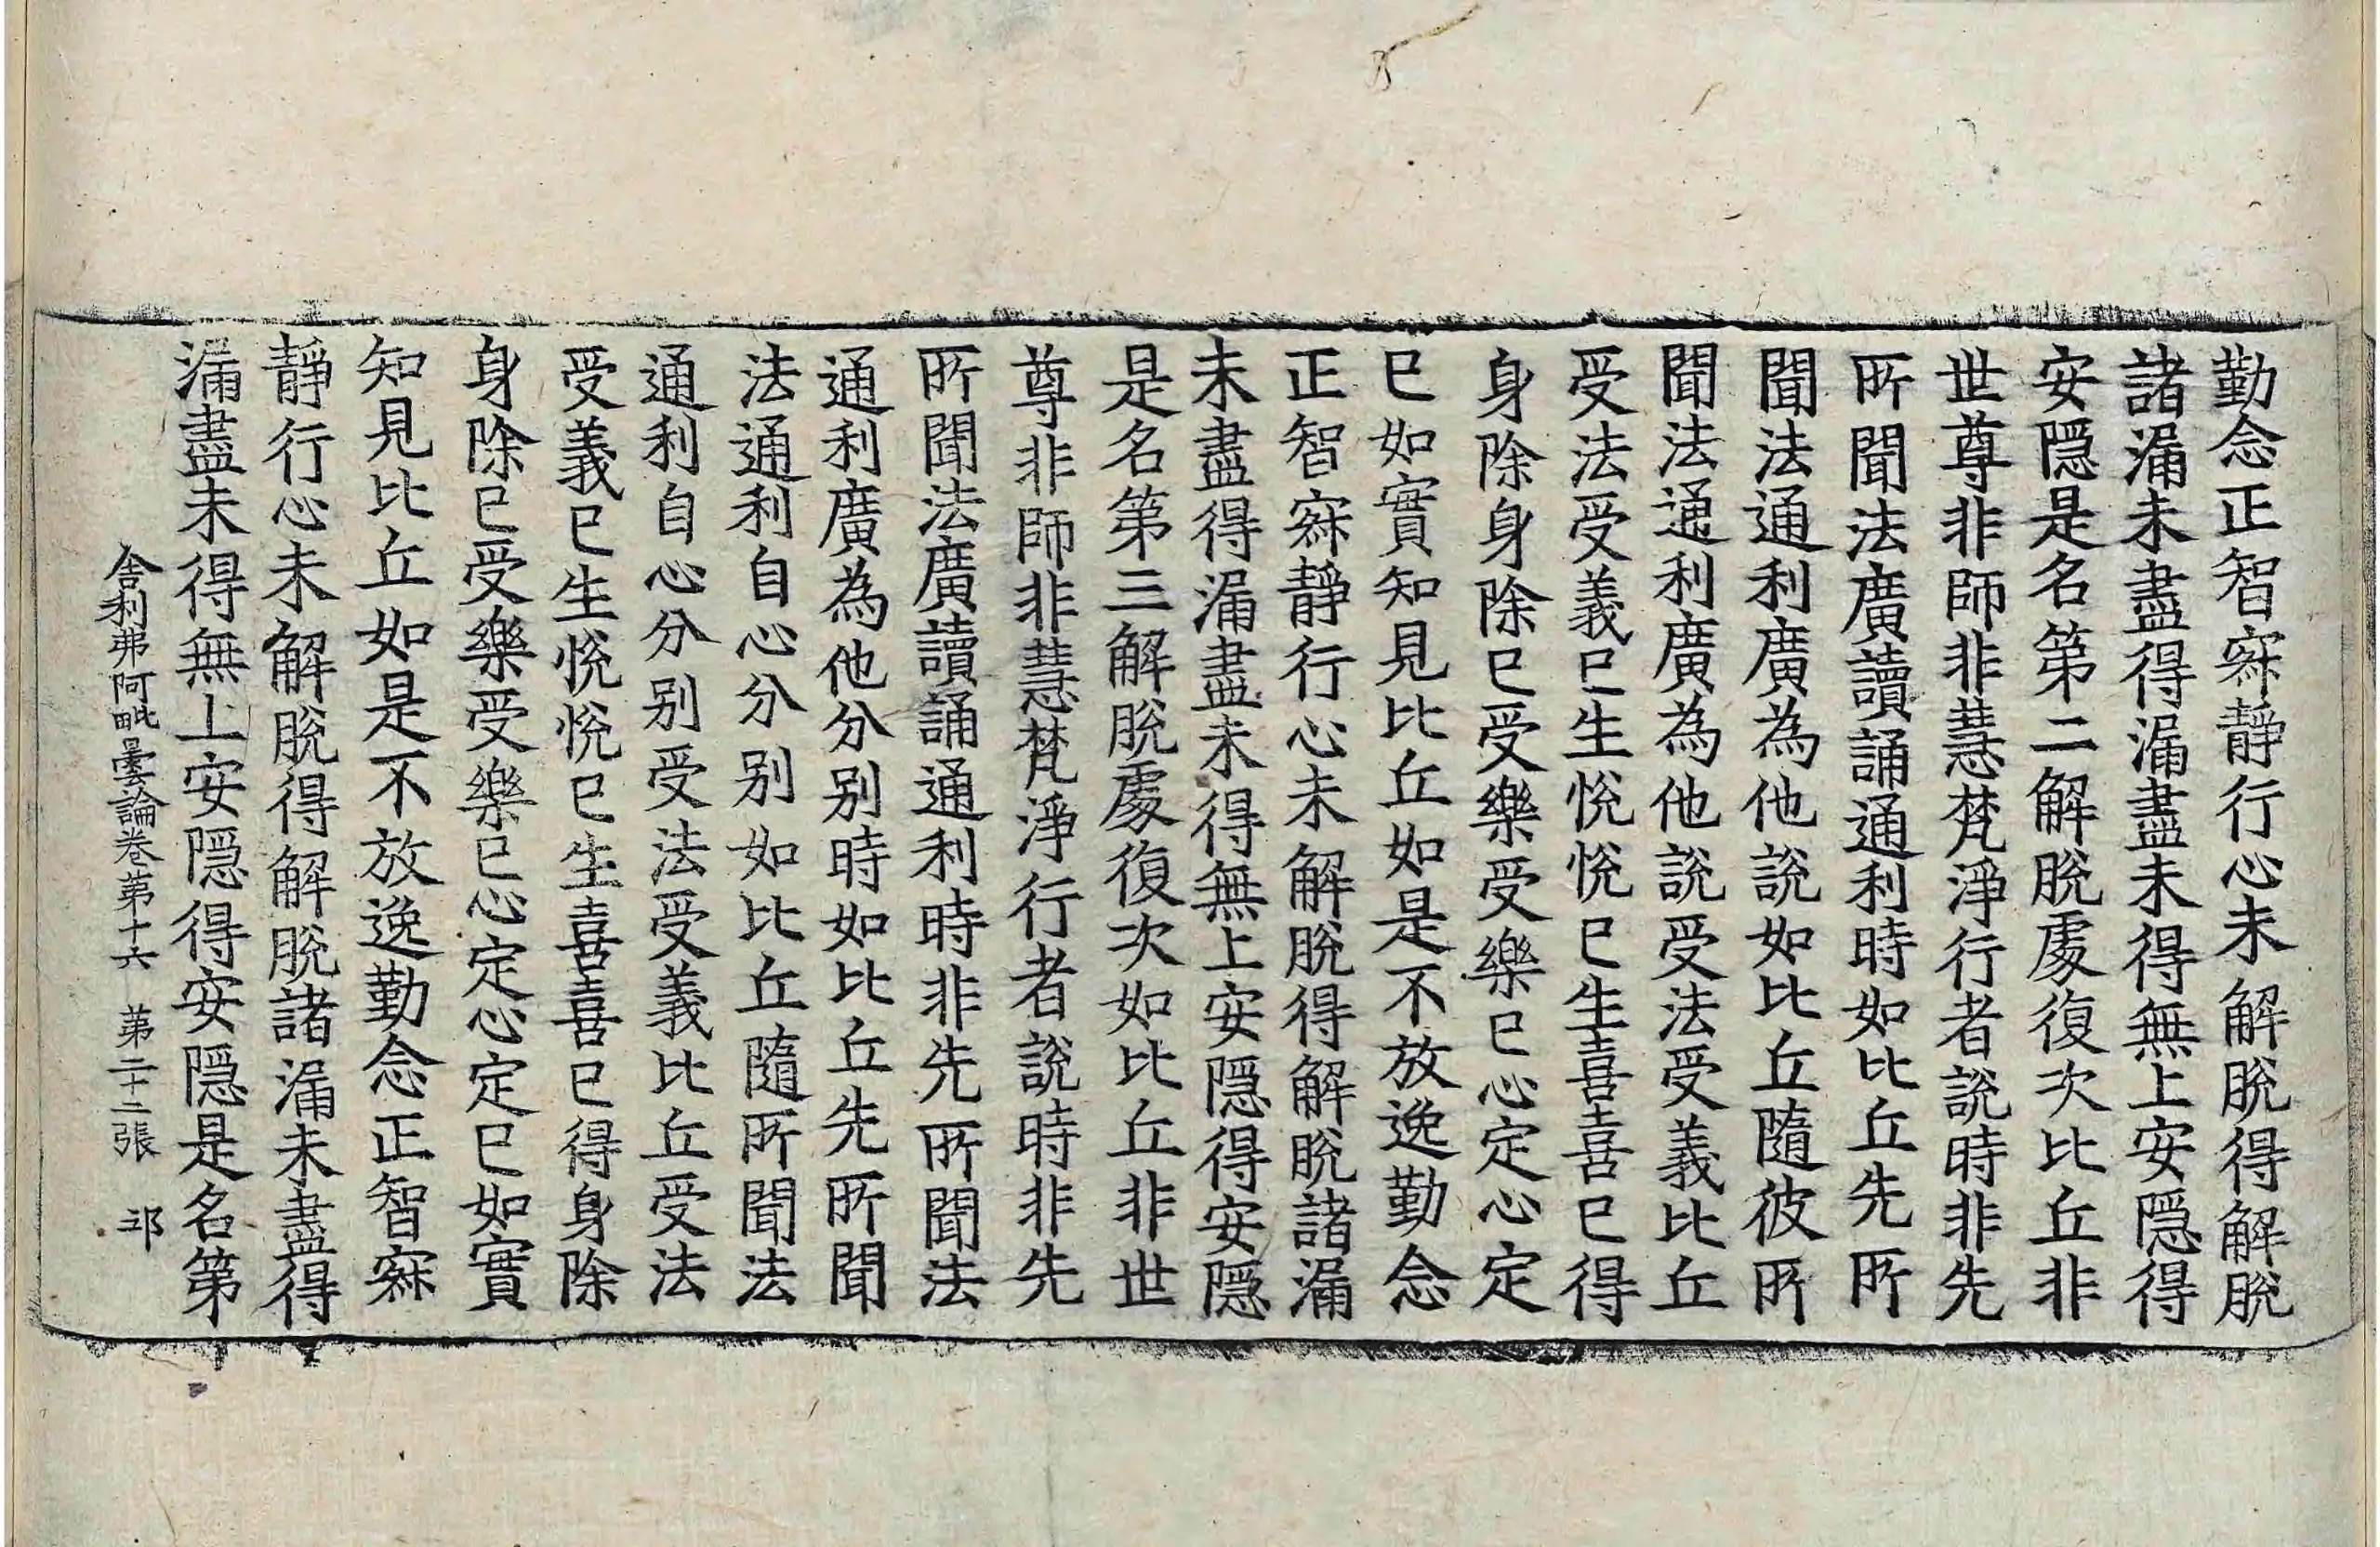 勤念正智寂靜行心未解脫得解脫
諸漏未盡得漏盡未得無上安隱得
安隱是名第二解脫處復次比丘非
世尊非師非慧梵淨行者說時非先
所聞法廣讀誦通利時如比丘先所
聞法通利廣為他說如比丘隨彼所
聞法通利廣為他說受法受義比丘
受法受義已生悅悅已生喜喜已得
身除身除已受樂受樂已心定心定
已如實知見比丘如是不放逸勤念
正智寂靜行心未解脫得解脫諸漏
未盡得漏盡未得無上安隱得安隱
是名第三解脫處復次如比丘非世
尊非師非慧梵淨行者說時非先
所聞法廣讀誦通利時非先所聞法
通利廣為他分別時如比丘先所聞
法通利自心分別如比丘隨所聞法
通利自心分別受法受義比丘受法
受義已生悅悅已生喜喜已得身除
身除已受樂受樂已心定心定已如實
知見比丘如是不放逸勤念正智寂
靜行心未解脫得解脫諸漏未盡得
漏盡未得無上安隱得安隱是名第
舍利弗阿毗曇論卷第十六 第二十二張 邛